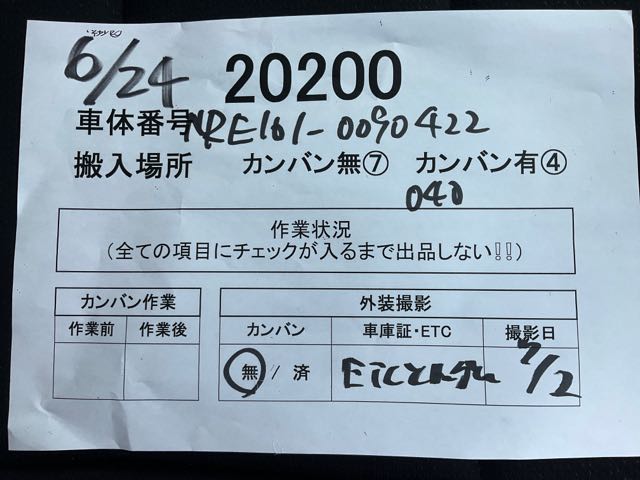 6/24
20200
車体番号 NRE161-0090422
搬入場所 カンバン無⑦ カンバン有④
040
作業状況
(全ての項目にチェックが入るまで出品しない!!)
カンバン作業
作業前 作業後
外装撮影
カンバン 車庫証・ETC 撮影日
無 / 済 ETC 7/2